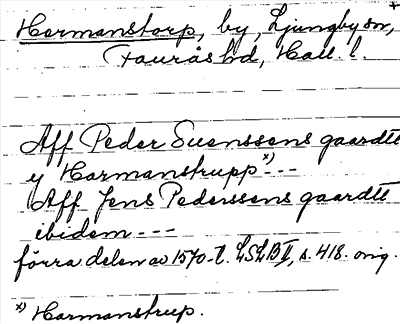 Harmanstorp, by, Ljungby sn,
Faurås hd, Hall. l.
Aff Peder Suenssens gaardtt
y Harmanstrupp x) ---
Aff Jens Pederssens gaardtt
ibidem ---
förra delen av 1570-t. LSLB II, s. 418. orig.
x) Harmanstrup.